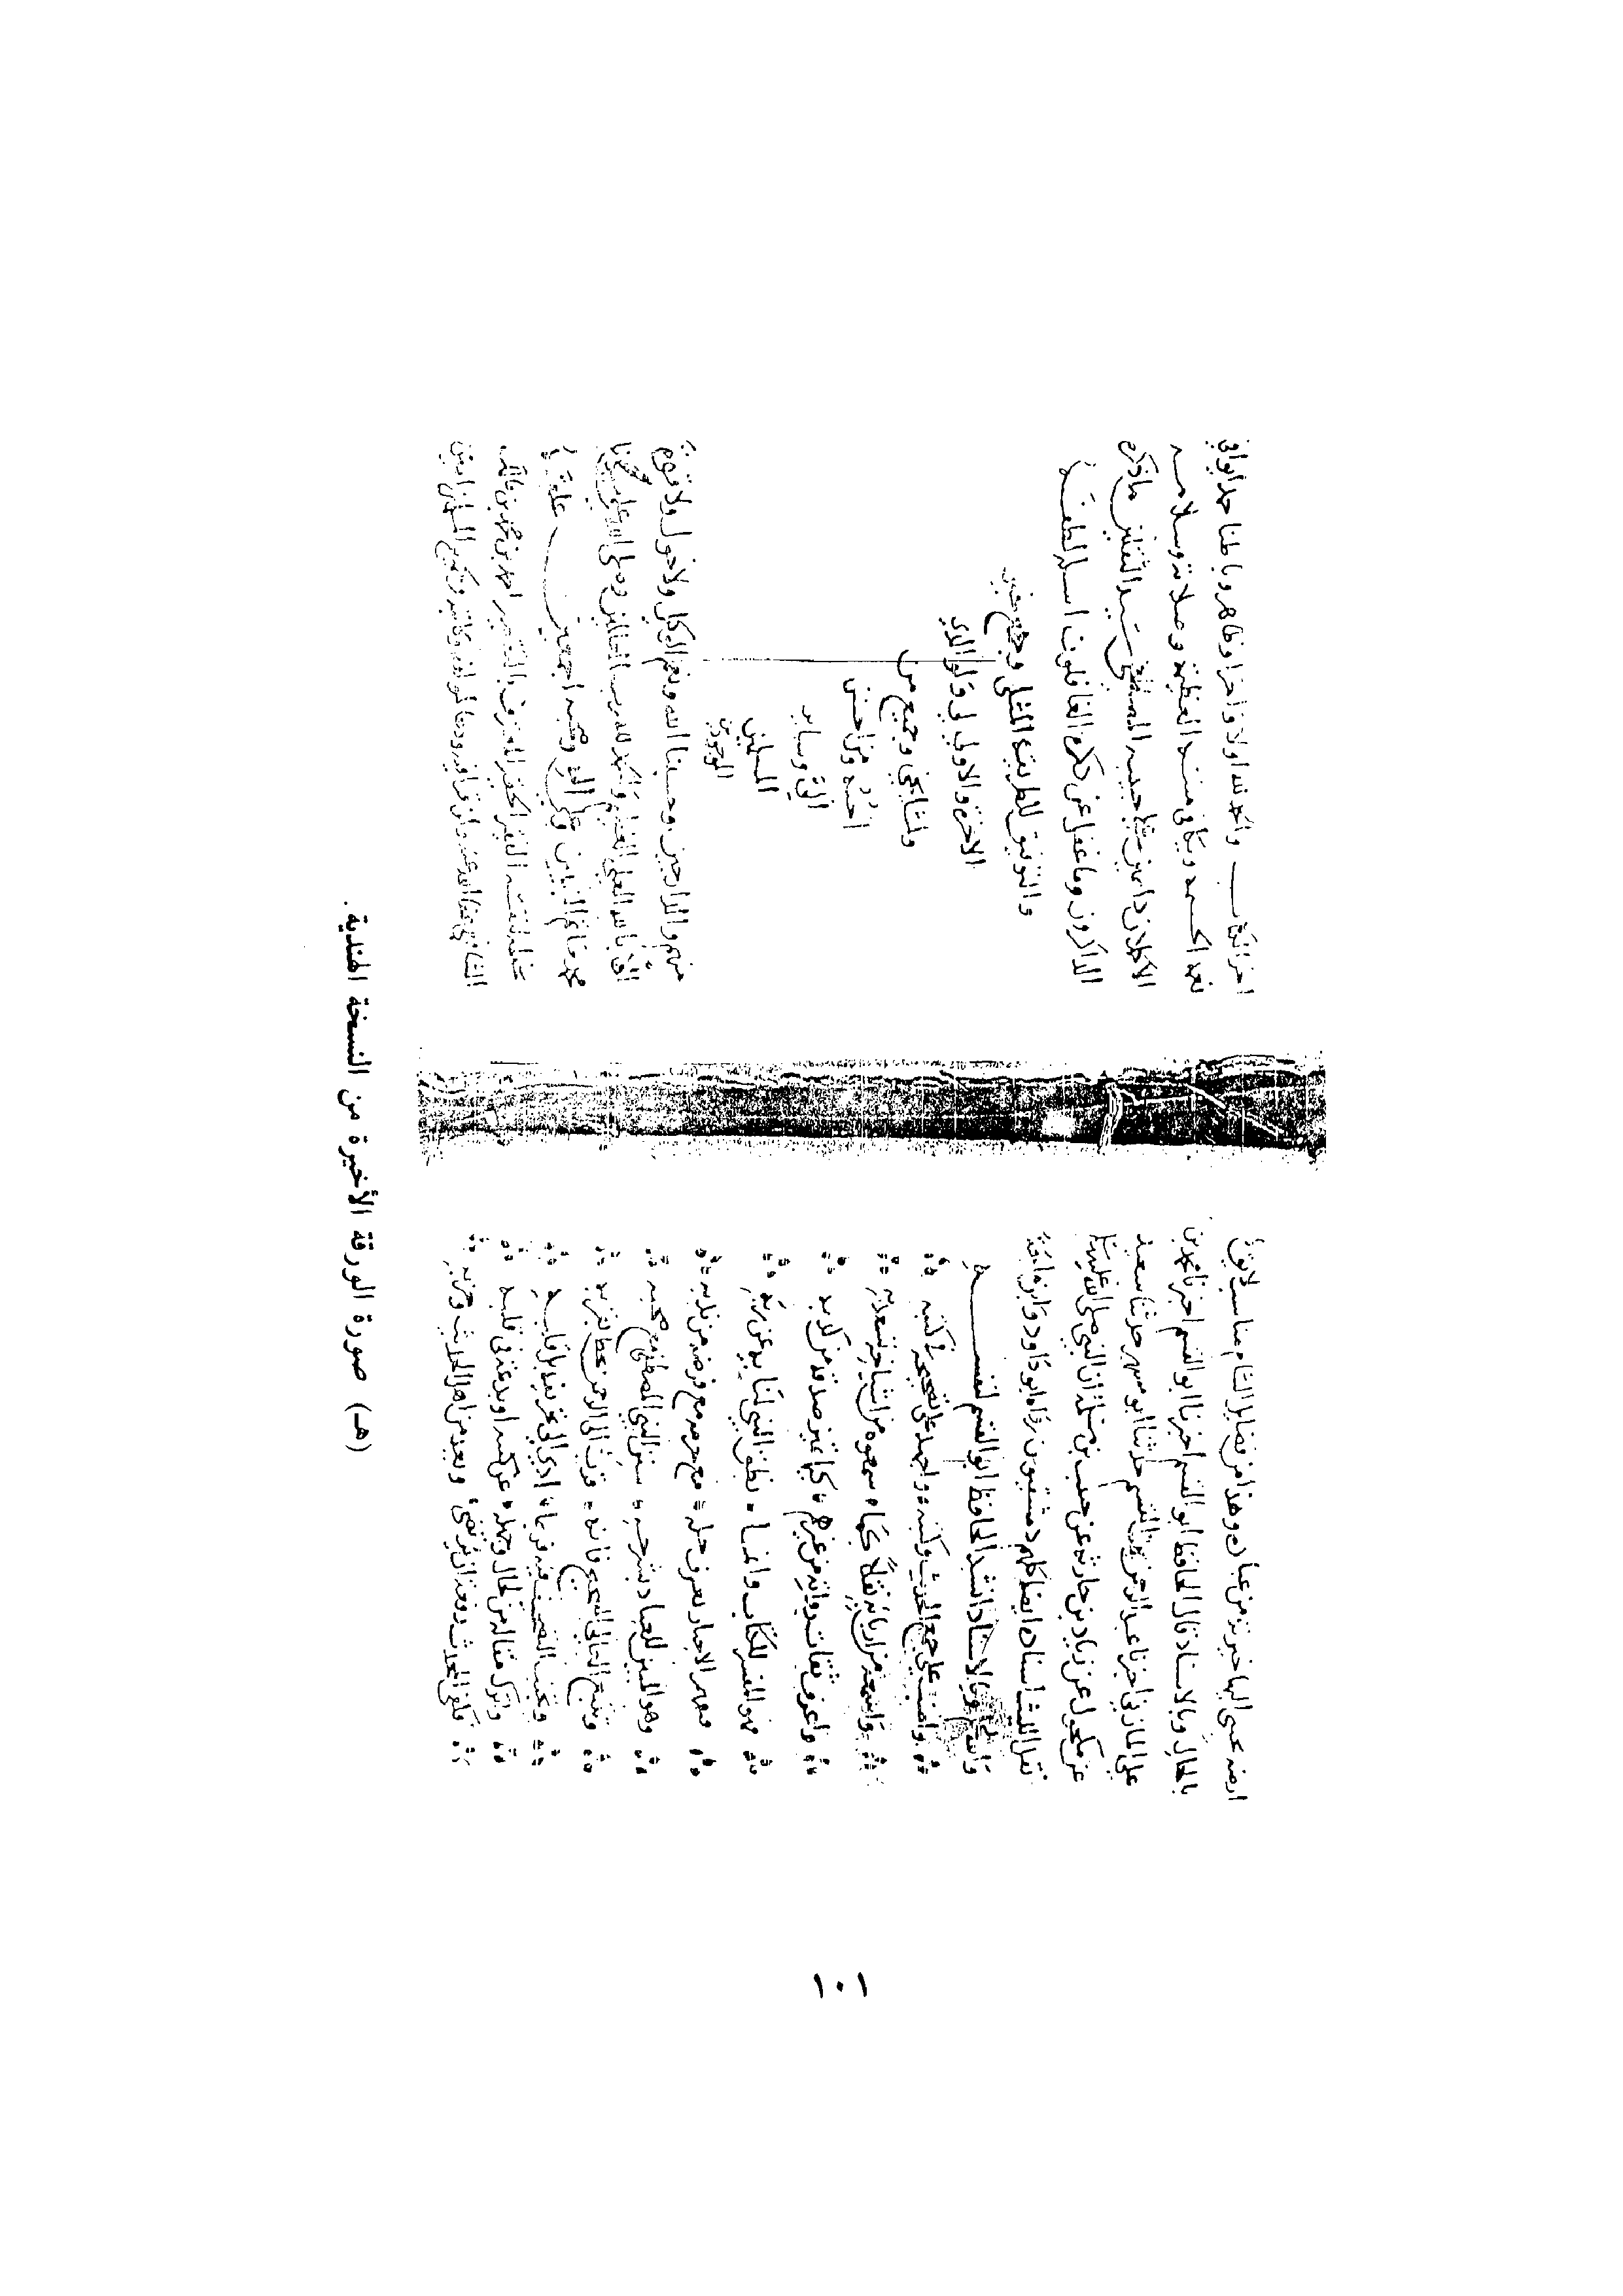 ارضه يجبي اليها خيرته من عباده وهذا من فضايل الشام مناسب لا يوافق
بالحال وبالاسناد قال الحافظ ابو القسم اخبرنا ابو القسم اخبرنا محمد بن
علي المازني اخبرنا عبد الرحمن بن القسم حدثنا ابو مسهر حدثنا سعيد
عن مكحول عن زياد بن جارية عن حبيب بن مسلمة ان النبي صلى الله عليه وسلم
نفل الثلث اسناده ايضا كلهم دمشقيون رواه ابو داود وابن ماجة
وبالاسناد انشد الحافظ ابو القسم لنفسه
واظب على جمع الحديث وكتبه واجهد على تصحيحه في كتبه
واسمعه من اربابه نقلا كما سمعوه من اشياخهم تسعد به
واعرف ثقات رواته من غيرهم كيما تميز صدقه من كذبه
فهو المفسر للكتاب وانما نطق النبي لنا به عن ربه
فتفهم الاخبار تعرف حله مع حرمه مع فرضه من ندبه
وهو المبين للعباد بشرحه سنن النبي المصطفى مع صحبه
وتتبع العالي الصحيح فانه قرب الى الرحمن تحظ بقربه
وتجنب التصحيف فيه فربما ادى الى تحريفه بل قلبه
واترك مقالة من لحاك بجهله عن كتبه او بدعة في قلبه
فكفى المحدث رفعة ان يرتضى ويعد من اهل الحديث وحزبه
اخر الكتاب والحمد لله اولا واخرا وظاهرا وباطنا حمدا يوافي
نعمه وصلاته وسلامه
الاكملان دائمين على حبيبه المصطفى سيد الثقلين ما ذكره
الذاكرون وما غفل عن ذكره الغافلون اسأله اللطف
والتوفيق للطريقة المثلى وجمع خيري
الاخرة والاولى لي ولوالدي
ومشايخي وجميع من
احبه ومن احسن
الي وساير
المسلمين
منهم والدارجين وحسبنا الله ونعم الوكيل ولا حول ولا قوة
الا بالله العلي العظيم والحمد لله رب العالمين وصلى الله على سيدنا
محمد خاتم النبيين وعلى اله وصحبه اجمعين علقه
لنفسه الفقير الحقير المعترف بالتقصير احمد بن محمد بن
الشافعي عفا الله عنه
(هـ) صورة الورقة الأخيرة من النسخة الهندية.
١٠١